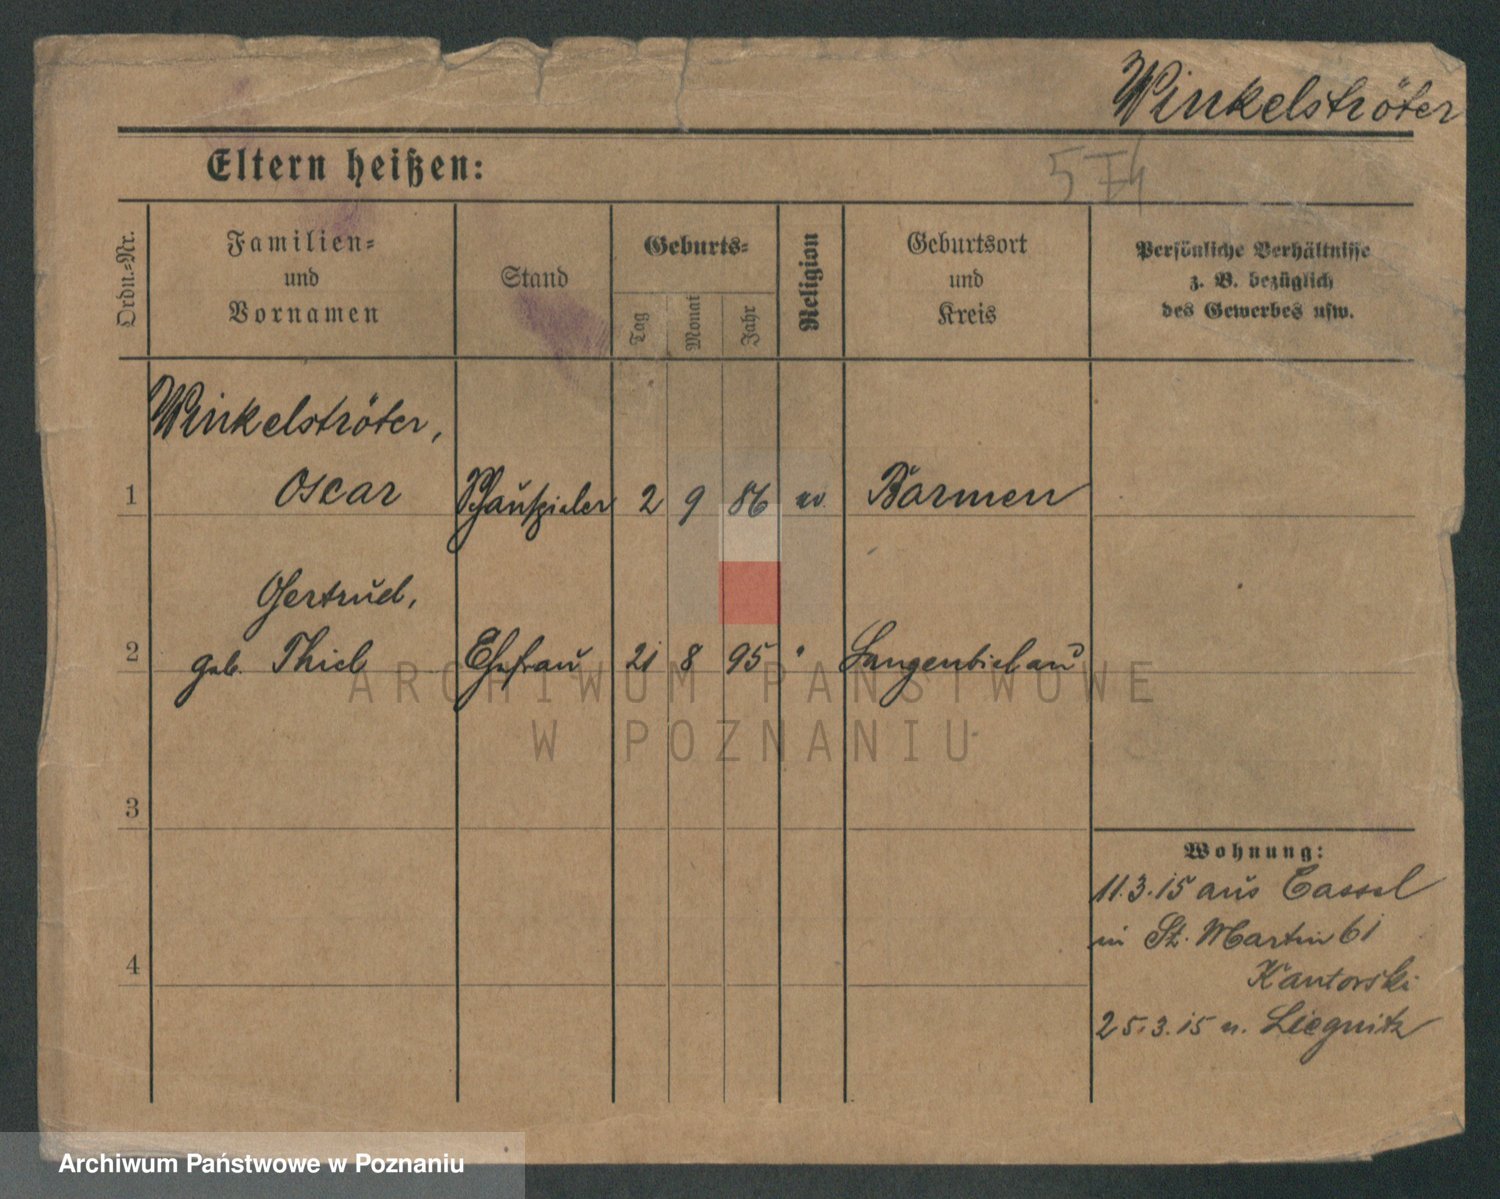 Winkelströter
Eltern heißen:
574
Ordn.-Nr.
Familien-
und
Vornamen
Stand
Geburts-
Tag
Monat
Jahr
Religion
Geburtsort
und
Kreis
Persönliche Verhältnisse
z. B. bezüglich
des Gewerbes usw.
Winkelströter,
1 Oscar Schauspieler 2 9 86 ev. Barmen
Gertrud,
2 geb. Thiel Ehefrau 21 8 95 " Langenbielau
3
4
Wohnung:
11.3.15 aus Cassel
in St. Martin 61
Kantorski
25.3.15 n. Liegnitz
ARCHIWUM PAŃSTWOWE
W POZNANIU
Archiwum Państwowe w Poznaniu